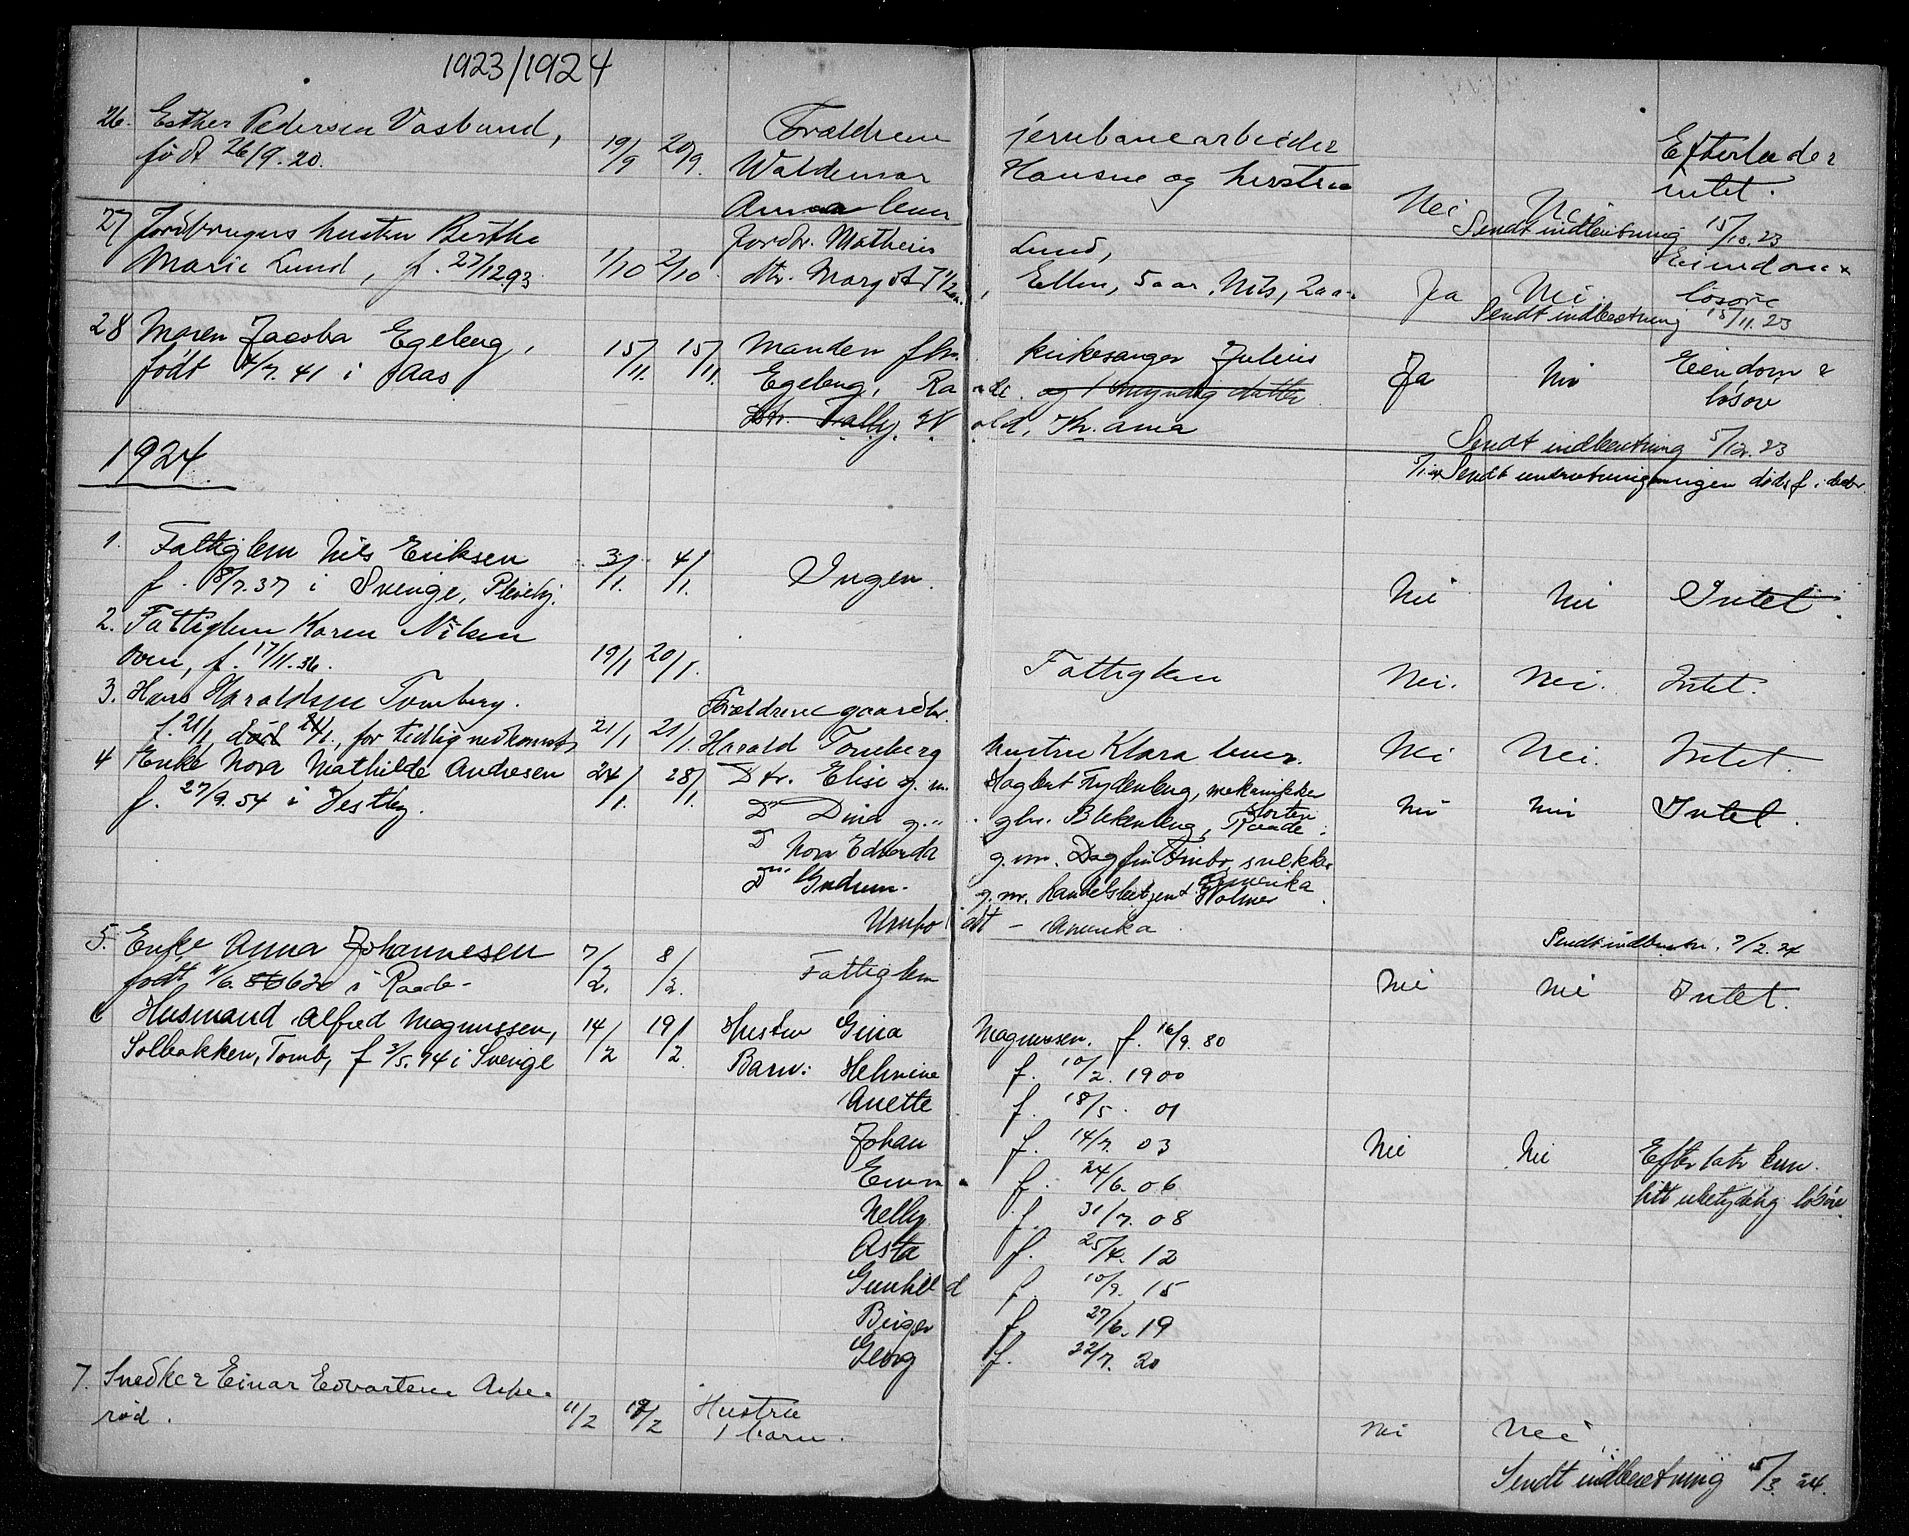 1923/1924
26. Esther Pedersen Vasbund, 19/9 20/9. Forældrene jernbanearbeider Efterlader
født 26/9. 20. Waldemar Hansen og hustru intet.
Anna Nei Nei
Sendt indberetning 15/10. 23
27 Jordbrugers hustru Berthe Jordbr. Mathias Lund, Eiendom &
Marie Lund, f. 27/12.93 1/10 2/10. dtr. Margot 7 1/2 aar, Ellen, 5 aar, Nils, 2 aar Ja Nei løsøre
Sendt indberetning 15/11. 23
28 Maren Jacoba Egeberg, 15/11. 15/11. Manden fhv. kirkesanger Julius Ja Nei Eiendom &
født 4/7. 41 i Aas Egeberg, Raade. og 1 myndig datter løsøre
dtr. Vally, Kr.ania
Sendt indberetning 5/12. 23
1924
5/1. Sendt underretning ingen dødsf. i decbr.
1. Fattiglem Nils Eriksen 3/1. 4/1. Ingen. Nei Nei Intet.
f. 8/7. 37 i Sverige,
2. Fattiglem Karen Nilsen 19/1 20/1. Fattiglem Nei. Nei. Intet.
f. 17/11. 36.
3. Hans Haraldsen Tomberg. Forældrene gaardbr.
f. 21/1, død 21/1., for tidlig nedkomst 21/1 21/1. Harald Tomberg hustru Klara Nei Nei. Intet.
4 Enke Nora Mathilde Andresen 24/1. 28/1. Dtr. Elise g. m. Dagbert Frydenberg, mekaniker
f. 27/9. 54 i Vestby. Do Dina g. " gbr. Blekenberg, Raade. Nei Nei Intet.
Do Nora Edvarda g. m. Dagfin snekker Amerika
Do Gudrun g. m. handelsbetjent Holmer
Amerika.
Sendt indberetn. 7/2. 24
5. Enke Anna Johannesen 7/2. 8/2. Fattiglem Nei Nei Intet.
født 11/6. 62 i Raade
6 Husmand Alfred Magnussen, 14/2 19/2. Hustru Gina Magnussen. f. 16/9. 80
Solbakken, Tomb, f 3/5. 74 i Sverige Barn: Helmine f. 10/2. 1900
Anette f. 18/5. 01
Johan f. 14/7. 03 Nei Nei Efterlater kun
Emma f. 24/6. 06 litt ubetydelig løsøre
Nelly f. 31/7. 08
Asta f. 25/4. 12
Gunhild f. 10/9. 15
Birger f. 27/6. 19
Georg f. 22/7. 20
7. Snedker Einar Edvartsen Aspe- 11/2 18/2 Hustru
rød. 1 barn. Nei Nei
Sendt indberetning 5/3. 24.